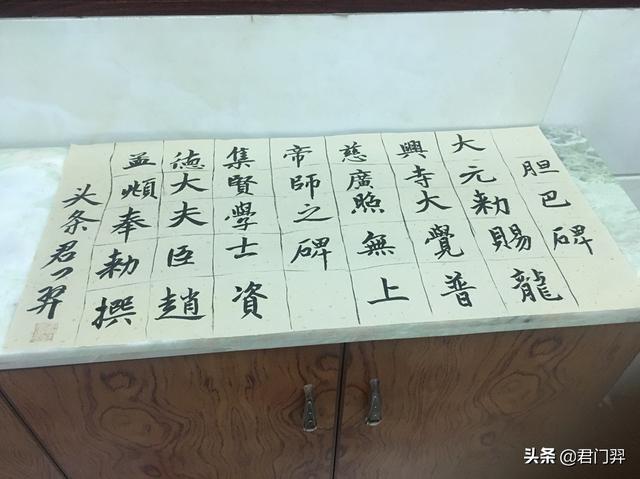 胆巴碑
大元勅賜龍
興寺大覺普
慈廣照無上
帝師之碑
集賢學士資
德大夫臣趙
孟頫奉勅撰
头条君门羿
头条 @君门羿